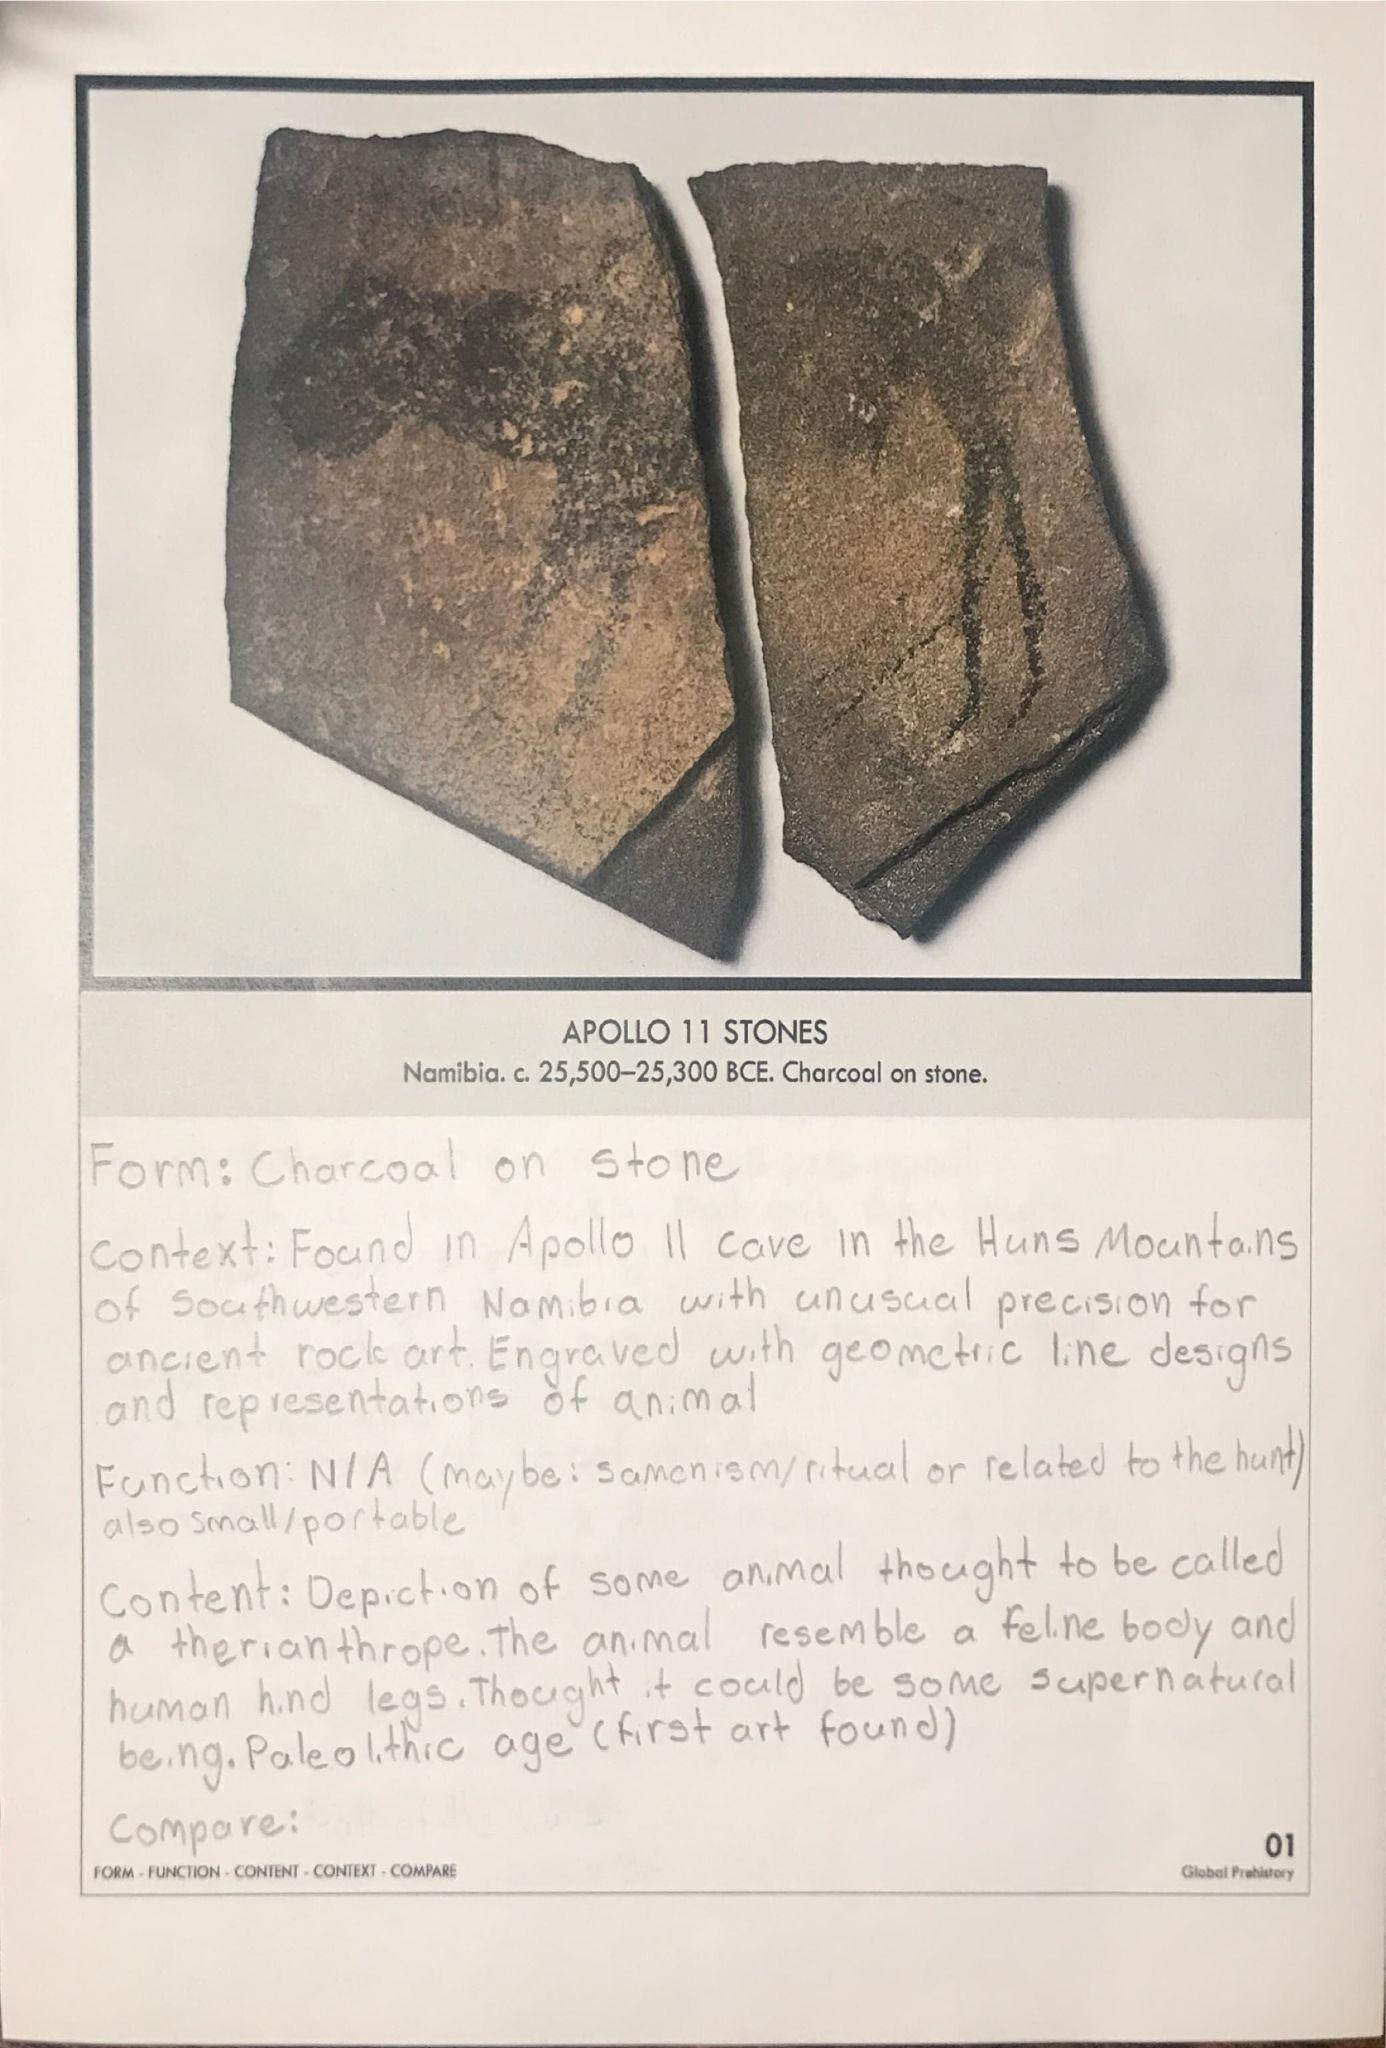 APOLLO 11 STONES
Namibia. c. 25,500–25,300 BCE. Charcoal on stone.
Form: Charcoal on stone
Context: Found in Apollo 11 cave in the Huns Mountains
of Southwestern Namibia with unusual precision for
ancient rock art. Engraved with geometric line designs
and representations of animal
Function: N/A (maybe: samenism/ritual or related to the hunt)
also small/portable
Content: Depiction of some animal thought to be called
a therianthrope. The animal resemble a feline body and
human hind legs. Thought it could be some supernatural
being. Paleolithic age (first art found)
Compare:
01
FORM - FUNCTION - CONTENT - CONTEXT - COMPARE
Global Prehistory